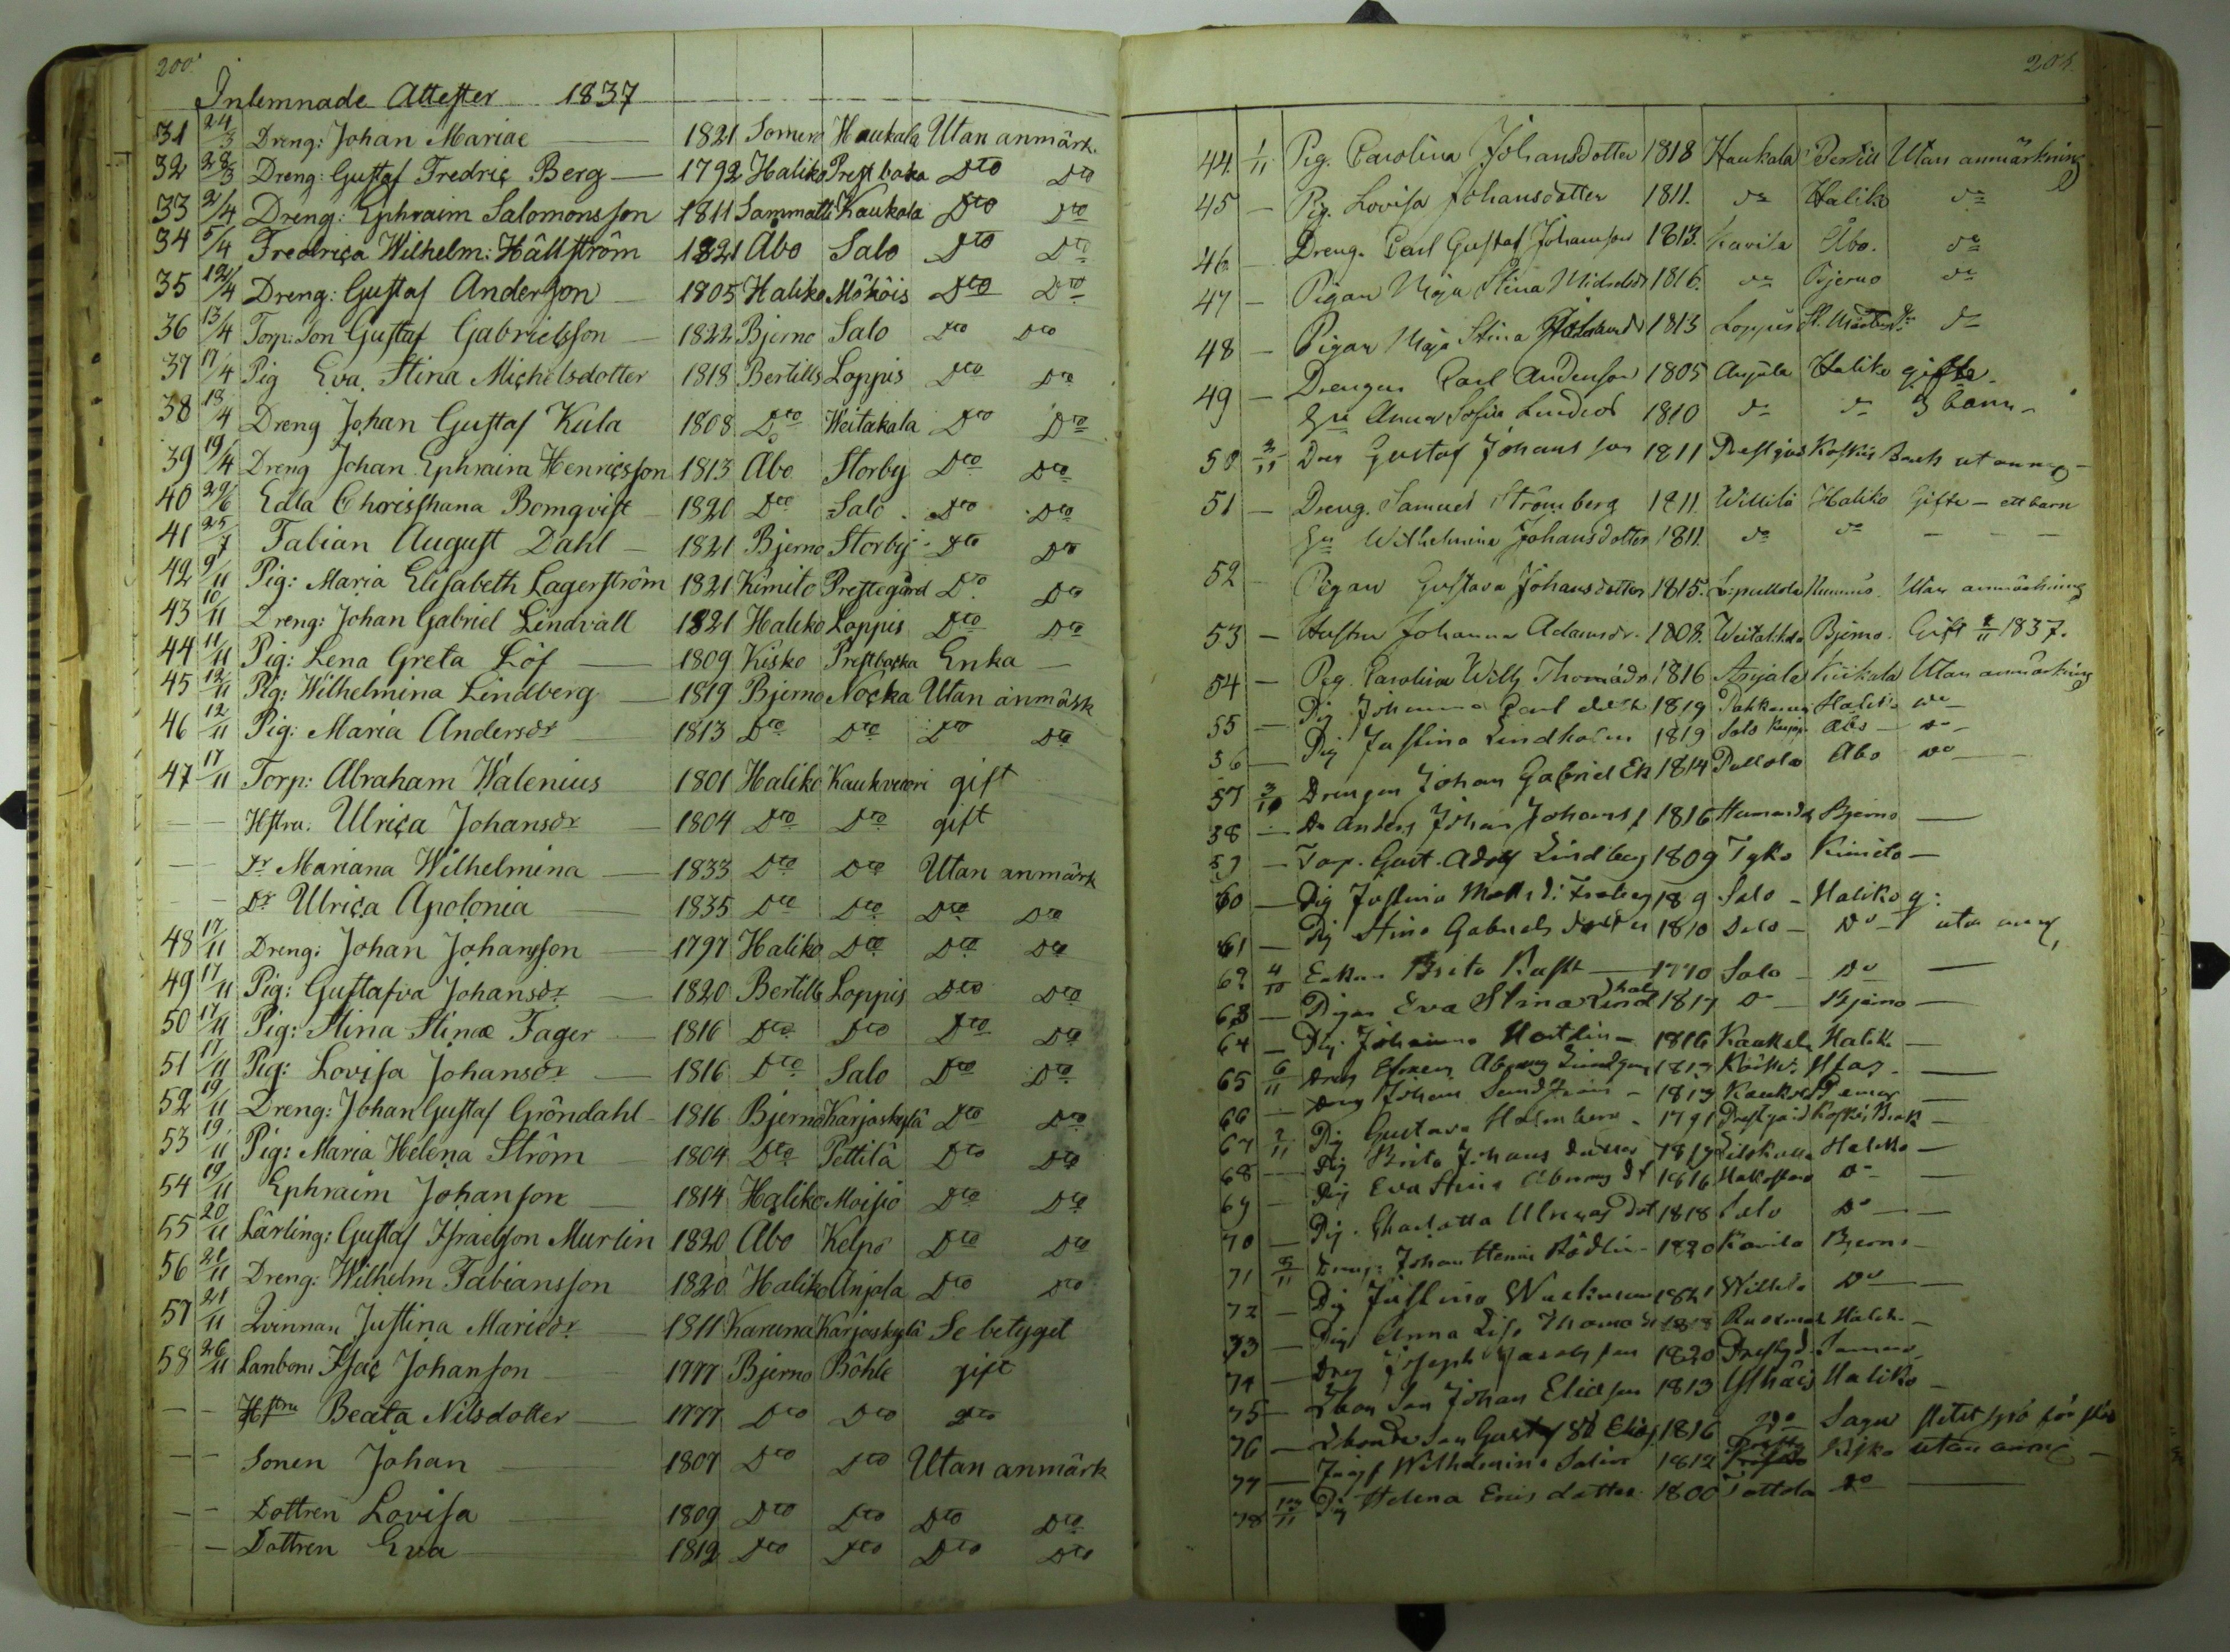 200.
Inlemnade Attester 1837
31 24/3 Dreng: Johan Mariae 1821 Somero Haukala Utan anmärk.
32 28/3 Dreng: Gustaf Fredriç Berg 1792 Haliko Prestbaka Dto Dto
33 2/4 Dreng: Ephraim Salomonsson 1811 Sammatti Kaukola Dto Dto
34 5/4 Fredriça Wilhelm: Hällström 1821 Åbo Salo Dto Dto
35 12/4 Dreng: Gustaf Anderson 1805 Haliko Mököis Dto Dto
36 13/4 Torp: Son Gustaf Gabrielsson 1822 Bjerno Salo Dto Dto
37 17/4 Pig Eva Stina Michelsdotter 1818 Bertills Loppis Dto Dto
38 18/4 Dreng Johan Gustaf Kula 1808 Dto Weitakala Dto Dto
39 19/4 Dreng Johan Ephraim Henriçsson 1813 Åbo Storby Dto Dto
40 29/6 Edla Chorisshana Bomqvist 1820 Dto Salo Dto Dto
41 25/7 Fabian August Dahl 1821 Bjerno Storby Dto Dto
42 9/11 Pig: Maria Elisabeth Lagerström 1821 Kimito Prestegård Dto Dto
43 10/11 Dreng: Johan Gabriel Lindvall 1821 Haliko Loppis Dto Dto
44 11/11 Pig: Lena Greta Löf 1809 Kisko Prestbaçka Enka
45 12/11 Pig: Wilhelmina Lindberg 1819 Bjerno Noçka Utan anmärk
46 12/11 Pig: Maria Andersdr 1813 Dto Dto Dto Dto
47 17/11 Torp: Abraham Walenius 1801 Haliko Kaukvuori gift
Hstru: Ulriça Johansdr 1804 Dto Dto gift
Dr Mariana Wilhelmina 1833 Dto Dto Utan anmärk
Dr Ulriça Apolonia 1835 Dto Dto Dto Dto
48 17/11 Dreng: Johan Johansson 1797 Haliko Dto Dto Dto
49 17/11 Pig: Gustafva Johansdr 1820 Bertills Loppis Dto Dto
50 17/11 Pig: Stina Stinae Fager 1816 Dto Dto Dto Dto
51 17/11 Pig: Lovisa Johansdr 1816 Dto Salo Dto Dto
52 19/11 Dreng: Johan Gustaf Gröndahl 1816 Bjerno Karjaskylä Dto Dto
53 19/11 Pig: Maria Helena Ström 1804 Dto Pettilä Dto Dto
54 19/11 Ephraim Johanson 1814 Haliko Moisio Dto Dto
55 20/11 Lärling: Gustaf Israelsson Murlin 1820 Åbo Kelpö Dto Dto
56 21/11 Dreng: Wilhelm Fabiansson 1820 Haliko Anjala Dto Dto
57 21/11 Qvinnan Justina Mariedr 1811 Karuna Karjaskylä Se betyget
58 26/11 Lanbon: Isaç Johanson 1777 Bjerno Böhle gift
Hstru Beata Nilsdotter 1777 Dto Dto Dto
Sonen Johan 1807 Dto Dto Utan anmärk
Dottren Lovisa 1809 Dto Dto Dto Dto
Dottren Eva 1812 Dto Dto Dto Dto
201.
44 1/11 Pig. Carolina Johansdotter 1818 Haukala Bertill Utan anmärkning
45 Pig. Lovisa Johansdotter 1811. do Haliko do
46 Dreng. Carl Gustaf Johanson 1813. Kavila Åbo. do
47 Pigan Maja Stina Michelsdr 1816. do Bjerno do
48 Pigan Maja Stina 1813 Loppis St. Mårtens do
49 Drengen Carl Anderson 1805 Anjala Haliko gifte
Hu Anna Sofia 1810 do do 3 barn
50 2/11 Gustaf Johansson 1811 Prestgård Koskis
51 Dreng. Samuel Strömberg 1811. Willilä Haliko Gifte - ett barn
Hu Wilhelmina Johansdotter 1811. do do
52 Pigan Gustava Johansdotter 1815. Utan anmärkning
53 Hustru Johanna Adamsdr. 1808. Weitakkala Bjerno. Gift 1837.
54 Pig. Carolina Wilh Thomasdr 1816 Anjala Kiikala Utan anmärkning
55 Pig Johanna 1819 Haliko do
56 Pig Justina Lindholm 1819 Salo Åbo do
57 3/10 Drengen Johan Gabriel Ek 1814 Pullola Åbo do
58 Dr Anders Johan Johans s 1816 Bjerno
59 Torp. Gust. Adolf Lindberg 1809 Tyko Kimito
60 Pig Justina 18 9 Salo Haliko g:
61 Pig Stina Gabriels dotter 1810 Salo Do utan anm
62 4/10 Enkan Brita Rask 1770 Salo Do
63 Pigan Eva Stina Lindhal 1817 Do Bjerno
64 Pig. Johanna 1816 Kaukola Haliko
65 6/11 Dreng Lindgren 1817
66 Dreng Johan Sundström 1813 Kaukola Pemar
67 7/11 Pig Gustava Holmberg 1791 Prestgård Koskis
68 Pig Brita Johans dotter 1817 Haliko
69 Pig Eva Stina 1816 Do
70 Pig. Charlotta Ulricas dot 1818 Salo Do
71 8/11 Dreng: Johan Henric Rödlin 1820 Kavila Bjerno
72 Pig Justina 1821 Willilä Do
73 Pig Anna Lisa Thomasdr 1818 Haliko
74 Dreng Joseph Jacobsson 1820 Prestgd.
75 Lbon Son Johan Eliasson 1813 Haliko
76 Lbonde Son Gustaf 1816 Do Sagu
77 Wilhelmina Salin 1812 Kisko utan anm
78 Pig Helena Erics dotter 1800 Tottola Do